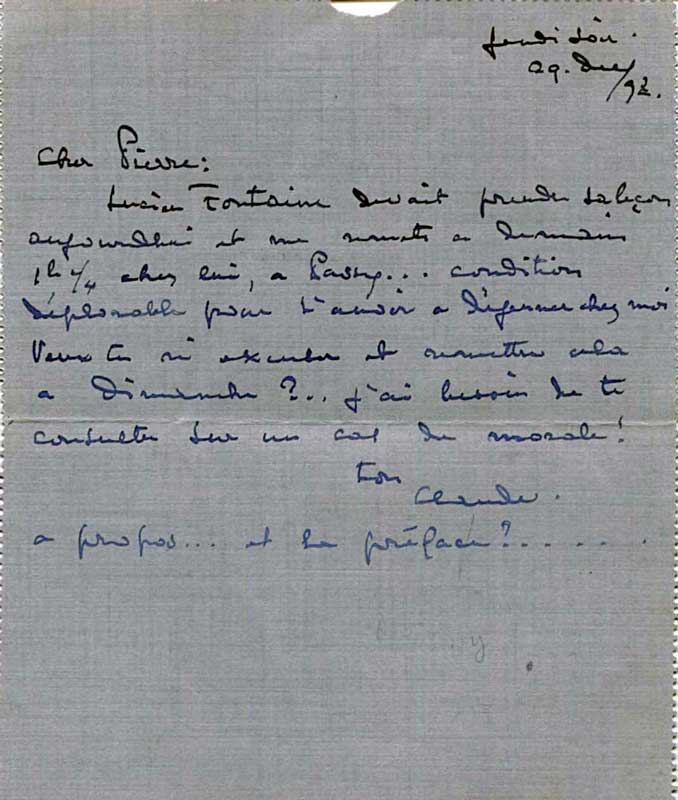 Jeudi soir.
29. Dec/92.
Cher Pierre:
Lucien Fontaine devait prendre sa leçon
aujourd'hui et me remets a demain
1h 1/4 chez lui, a Passy... condition
déplorable pour t'avoir a déjeuner chez moi
Veux tu m'excuser et remettre cela
a Dimanche ?.. j'ai besoin de te
consulter sur un cas de morale!
ton
Claude.
a propos... et la préface?......